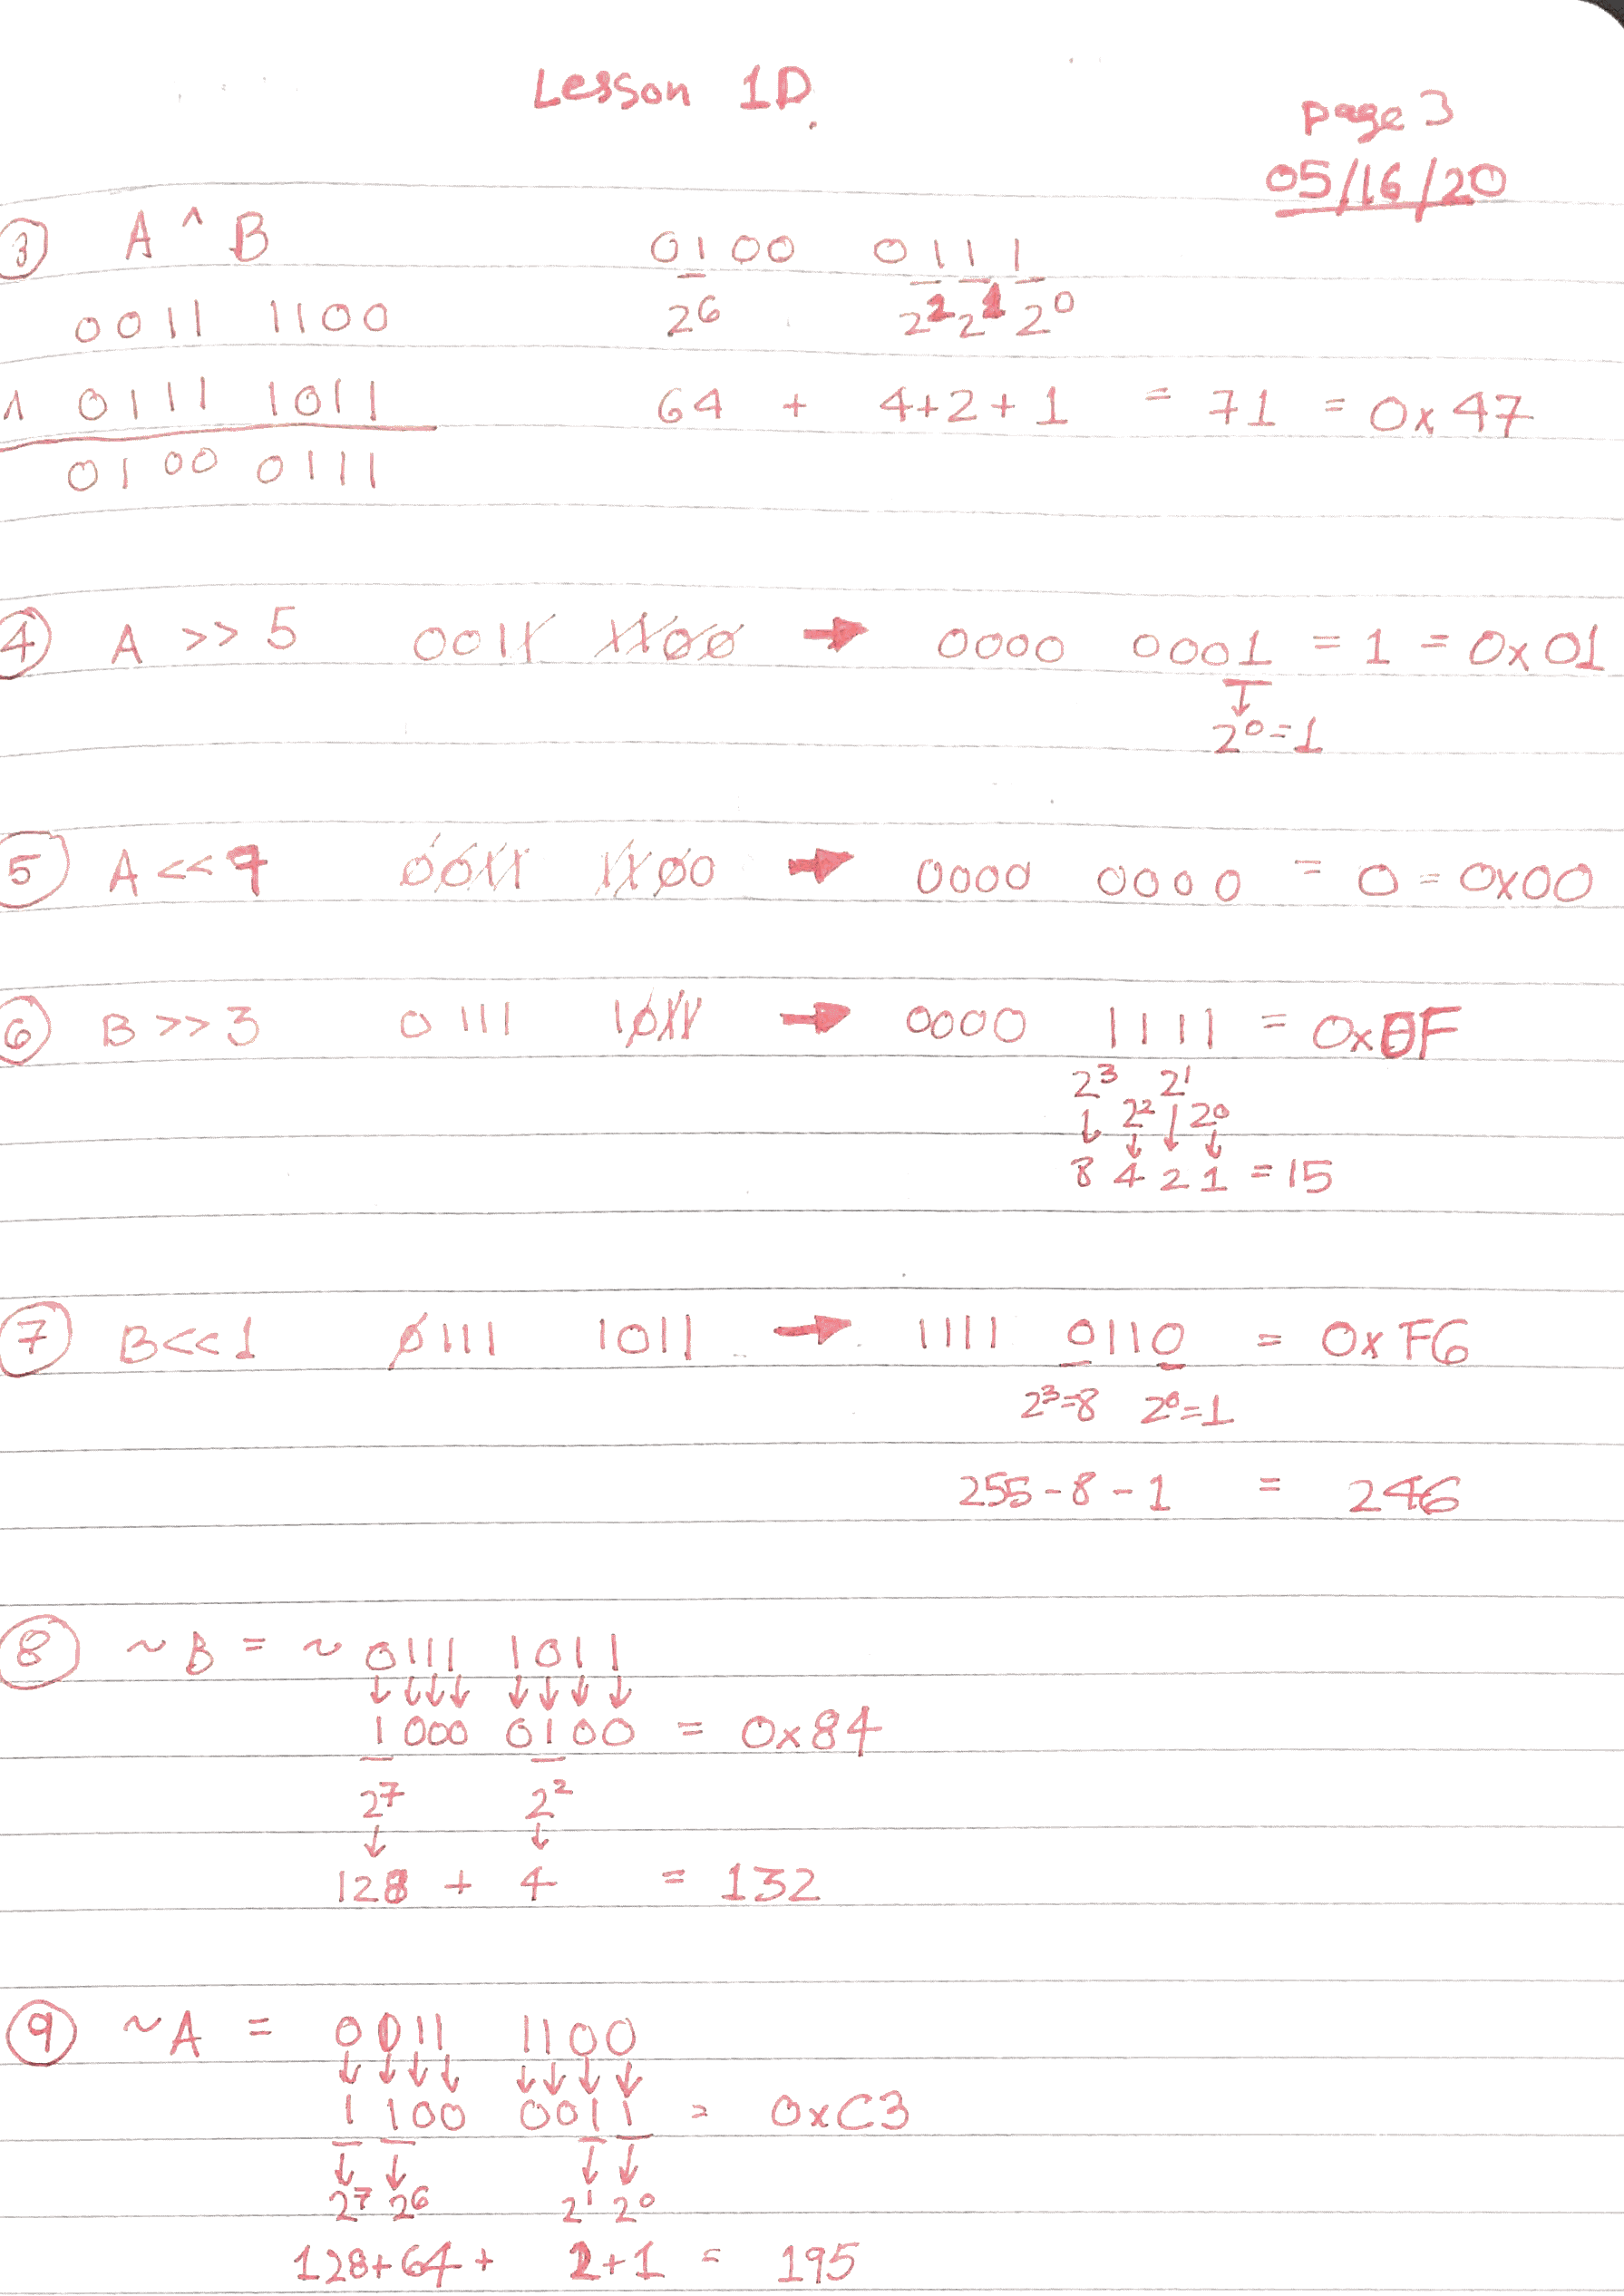 Lesson 1D.
page 3
05/16/20
3 A ^ B 0100 0111
0011 1100 2^6 2^2 2^1 2^0
^ 0111 1011 64 + 4+2+1 = 71 = 0x47
0100 0111
4 A >> 5 0011 1100 → 0000 0001 = 1 = 0x01
↓
2^0=1
5 A << 7 0011 1100 → 0000 0000 = 0 = 0x00
6 B >> 3 0111 1011 → 0000 1111 = 0x0F
2^3 2^1
↓ 2^2 ↓ 2^0
↓ ↓
8 4 2 1 = 15
7 B<<1 0111 1011 → 1111 0110 = 0xF6
2^3=8 2^0=1
255-8-1 = 246
8 ~B = ~ 0111 1011
↓↓↓↓ ↓↓↓↓
1000 0100 = 0x84
2^7 2^2
↓ ↓
128 + 4 = 132
9 ~A = 0011 1100
↓↓↓↓ ↓↓↓↓
1100 0011 = 0xC3
↓ ↓ ↓ ↓
2^7 2^6 2^1 2^0
128+64+ 2+1 = 195